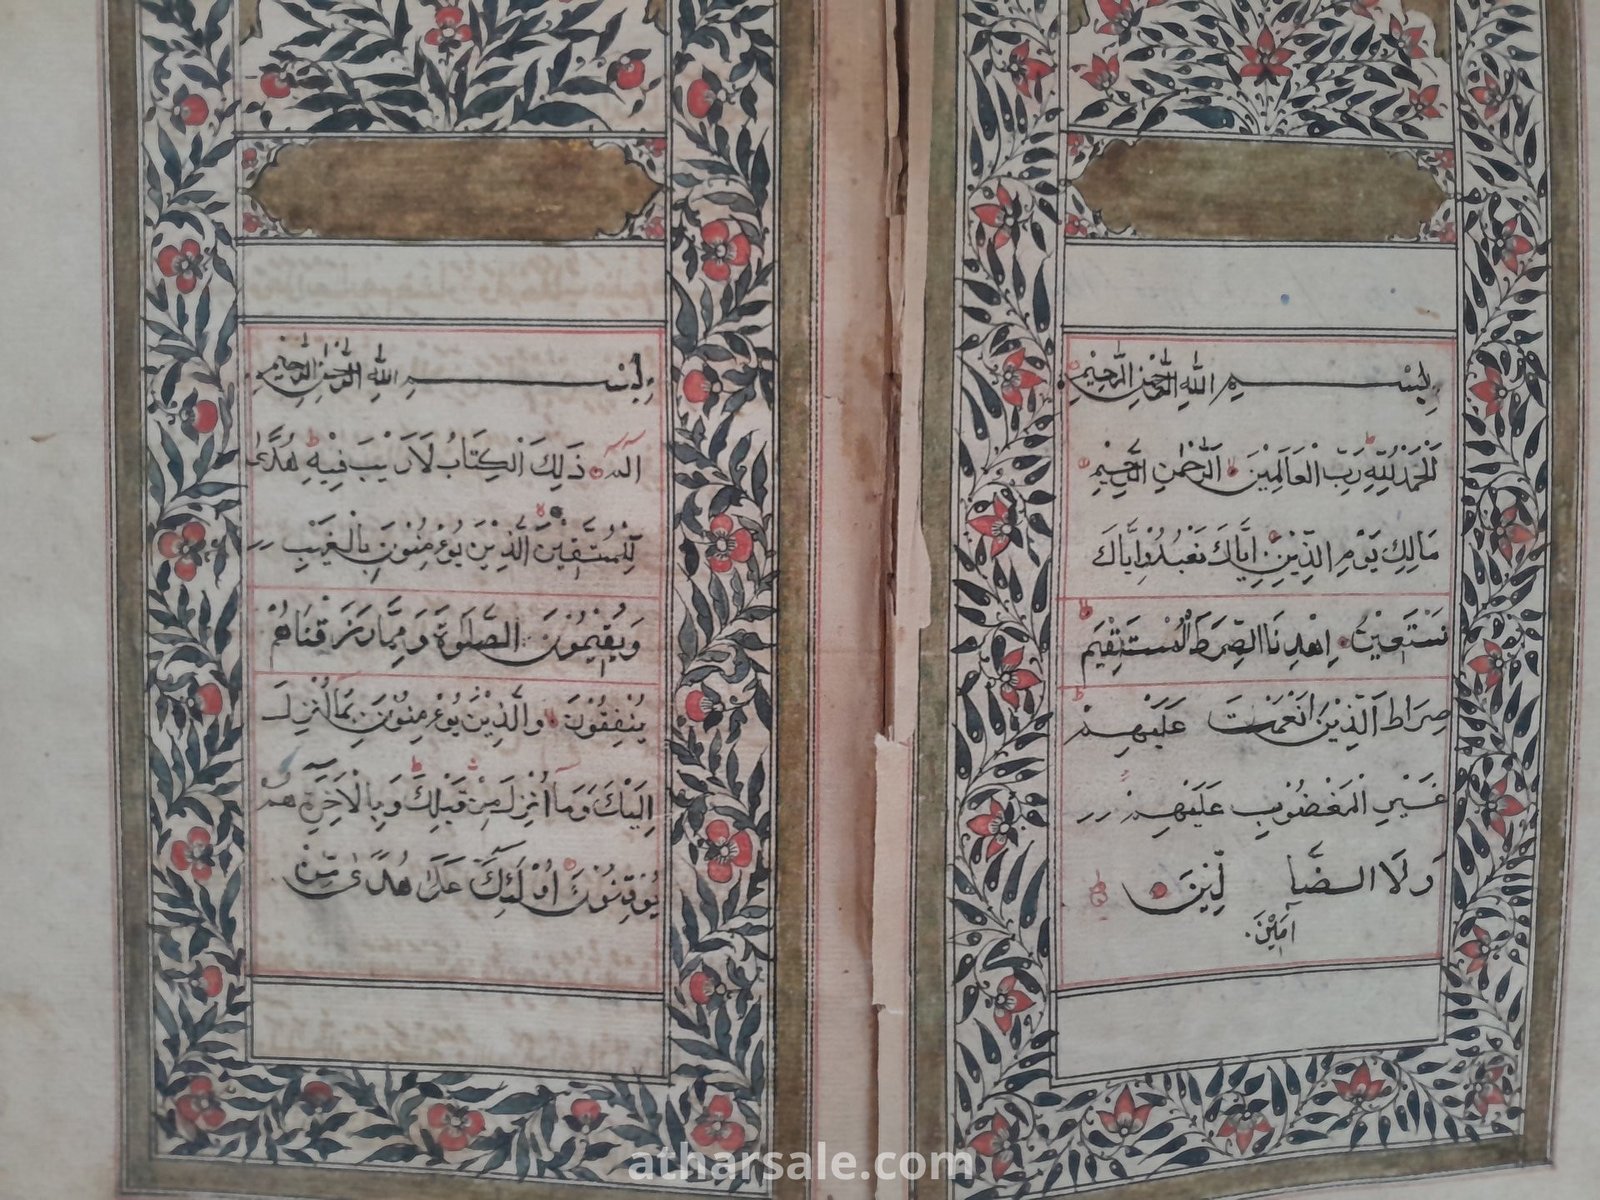 بِسْمِ اللهِ الرَّحْمٰنِ الرَّحِيْمِ
اَلْحَمْدُ لِلّٰهِ رَبِّ الْعَالَمِيْنَ الرَّحْمٰنِ الرَّحِيْمِ
مَالِكِ يَوْمِ الدِّيْنِ اِيَّاكَ نَعْبُدُ وَاِيَّاكَ
نَسْتَعِيْنُ اِهْدِنَا الصِّرَطَ الْمُسْتَقِيْمَ
صِرَاطَ الَّذِيْنَ اَنْعَمْتَ عَلَيْهِمْ
غَيْرِ الْمَغْضُوْبِ عَلَيْهِمْ
وَلَا الضَّا لِّيْنَ
اٰمِيْنَ
بِسْمِ اللهِ الرَّحْمٰنِ الرَّحِيْمِ
الٓمٓ ذَلِكَ الْكِتَابُ لَا رَيْبَ فِيْهِ هُدًى
لِلْمُتَّقِيْنَ الَّذِيْنَ يُؤْمِنُوْنَ بِالْغَيْبِ
وَيُقِيْمُوْنَ الصَّلٰوةَ وَمِمَّا رَزَقْنَاهُمْ
يُنْفِقُوْنَ وَالَّذِيْنَ يُؤْمِنُوْنَ بِمَا اُنْزِلَ
اِلَيْكَ وَمَا اُنْزِلَ مِنْ قَبْلِكَ وَبِالْاٰخِرَةِ هُمْ
يُوْقِنُوْنَ اُوْلٰئِكَ عَلٰى هُدًى مِّنْ
atharsale.com